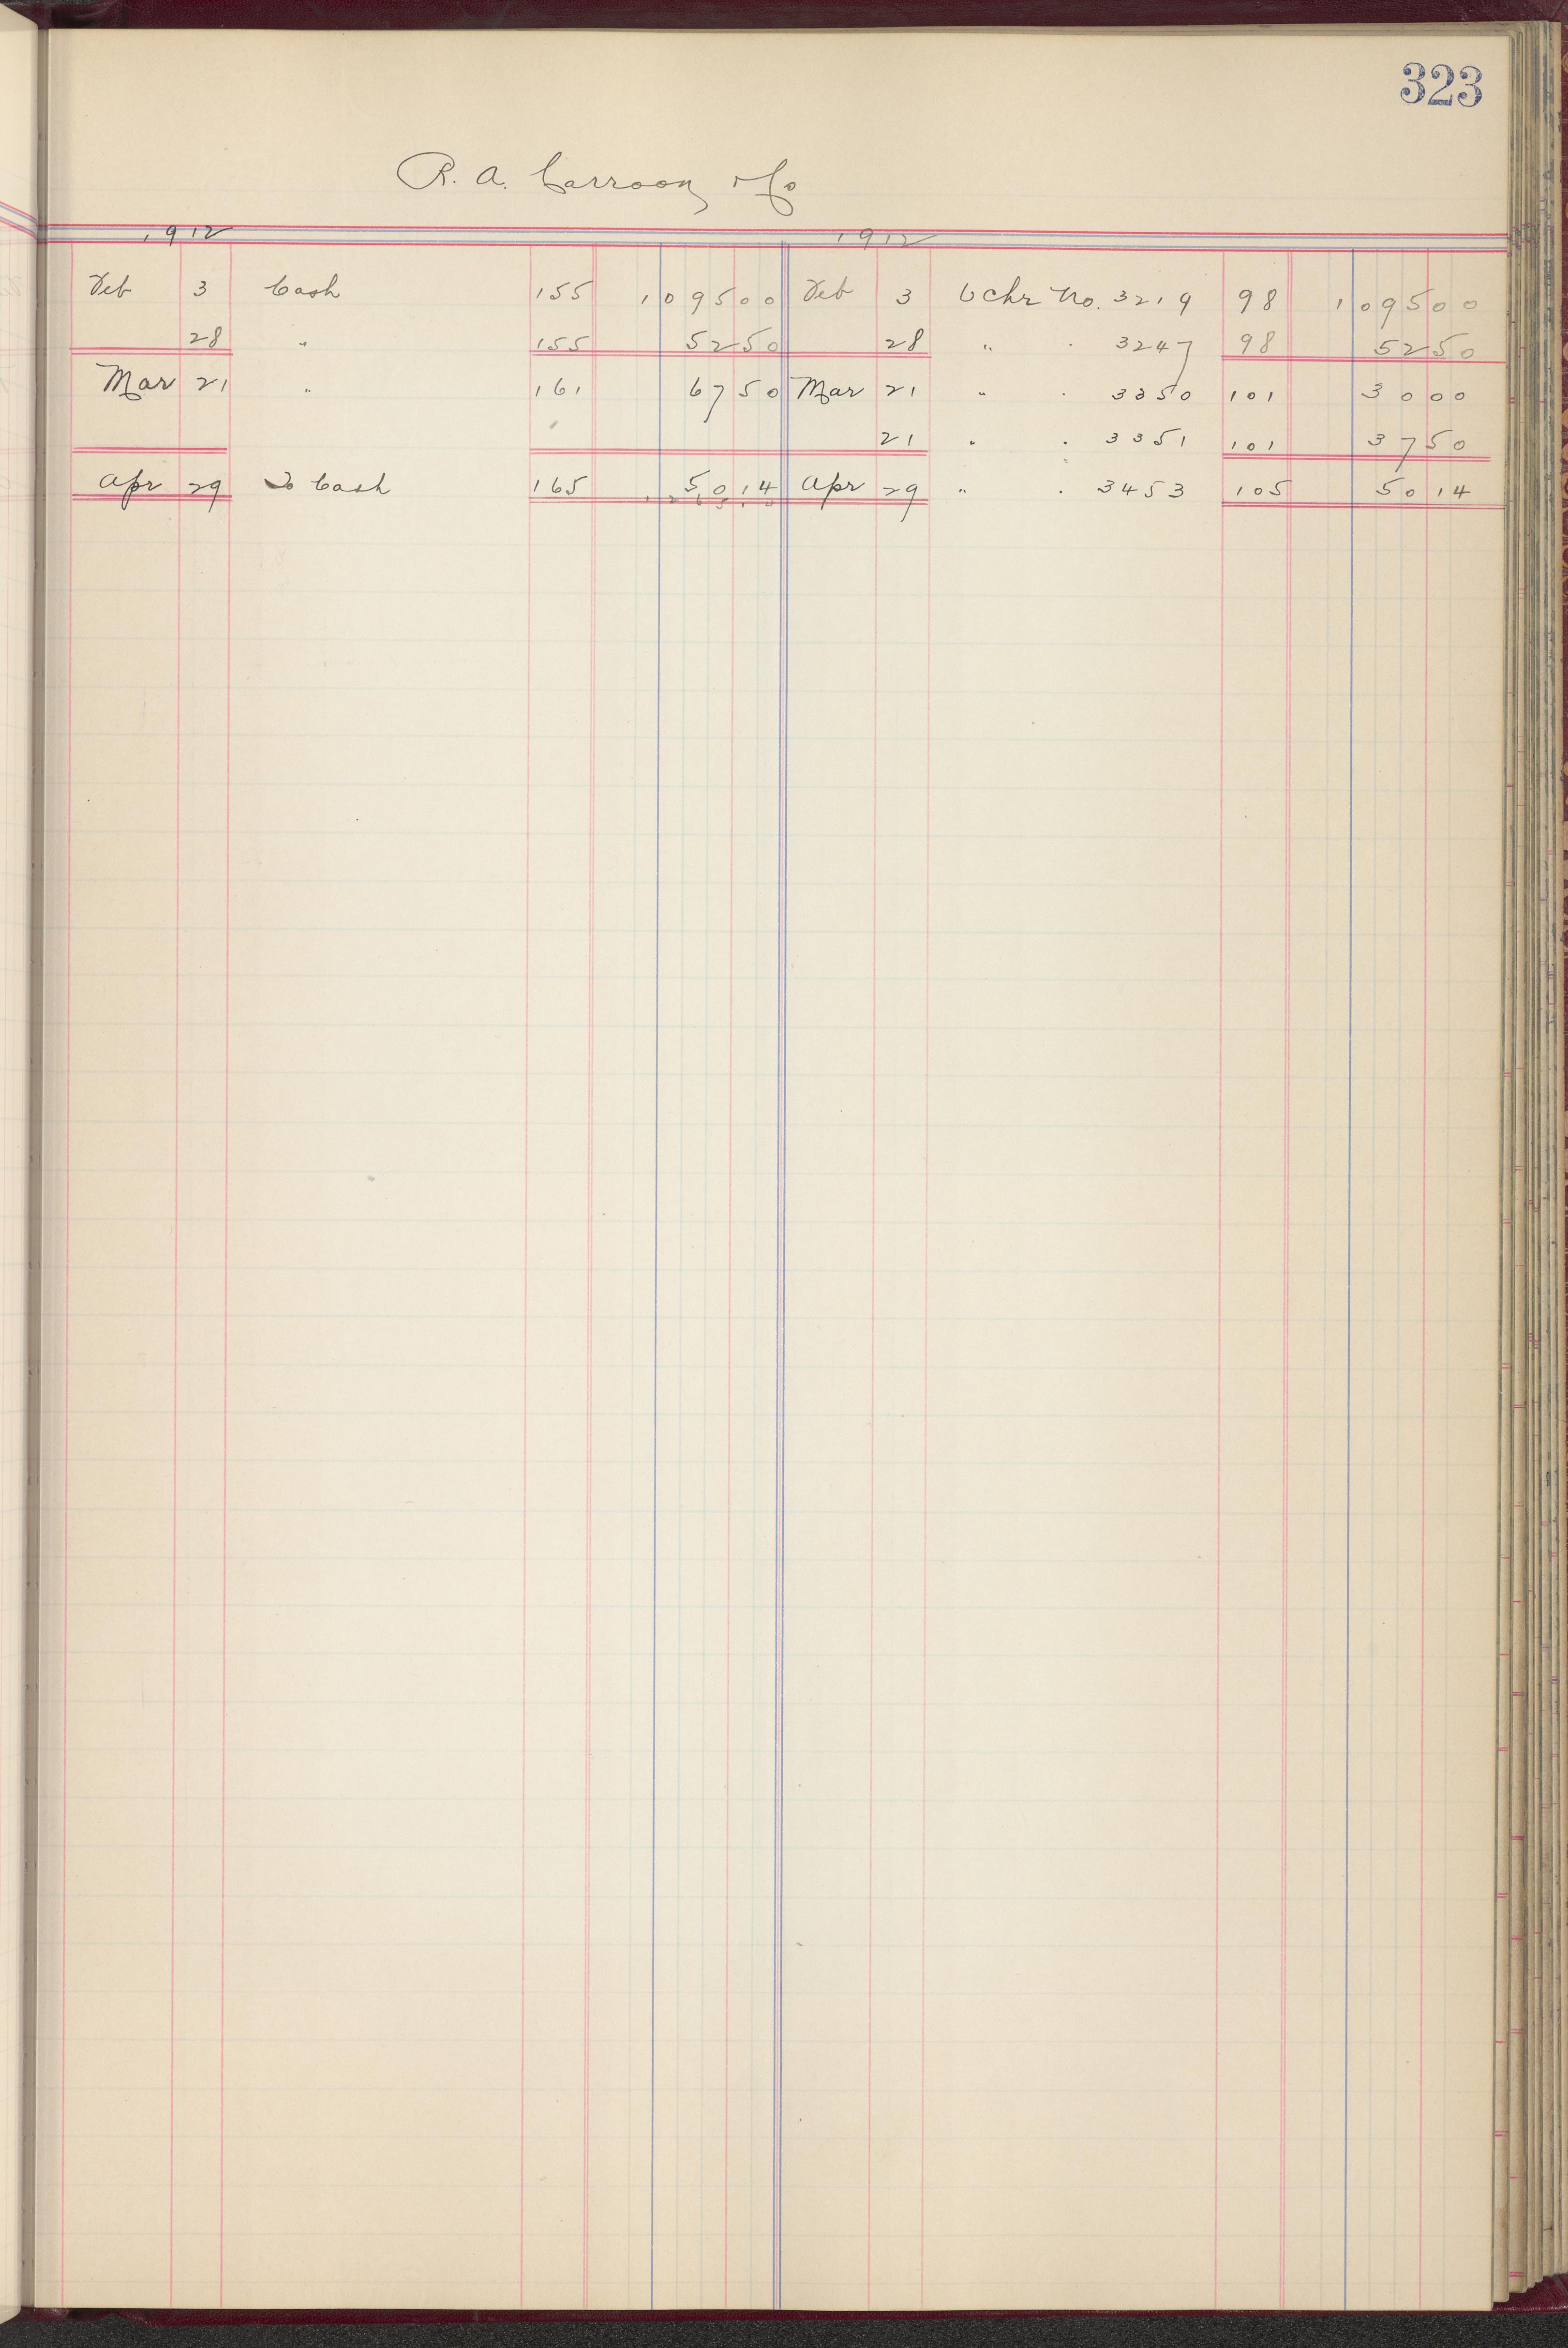 323
R. A. Carroon & Co
1912 1912
Feb 3 Cash 155 1 095 00 Feb 3 Vchr No. 3219 98 1 095 00
28 " 155 52 50 28 " " 3247 98 52 50
Mar 21 " 161 67 50 Mar 21 " " 3350 101 30 00
21 " " 3351 101 37 50
Apr 29 To Cash 165 50 14 Apr 29 " " 3453 105 50 14